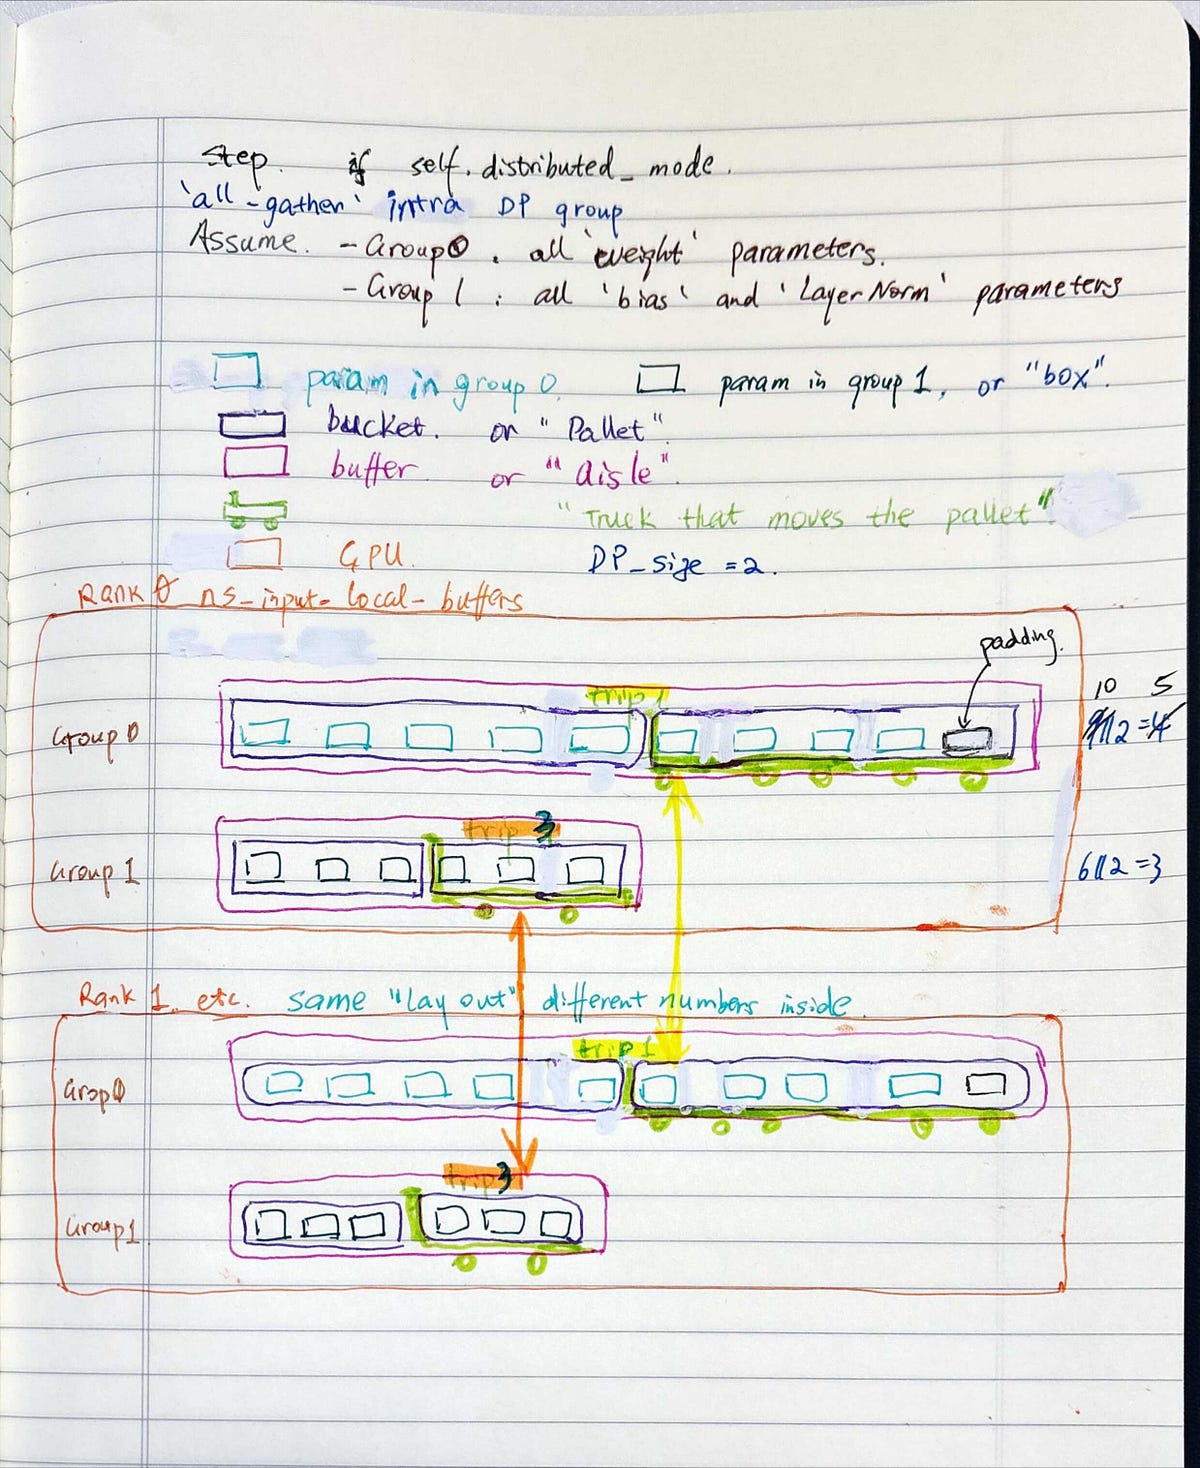 Step. if self.distributed_mode.
'all-gather' intra DP group
Assume. - Group 0. all 'weight' parameters.
- Group 1: all 'bias' and 'LayerNorm' parameters
param in group 0. param in group 1, or "box".
bucket. or "Pallet"
buffer or "aisle".
"Truck that moves the pallet"
GPU. DP_size = 2.
Rank 0 ns_input_local_buffers
padding.
trip 1
10 5
Group 0
trip 3
Group 1
6//2 = 3
Rank 1. etc. same "lay out" different numbers inside.
trip 1
Grop 0
trip 3
Group 1